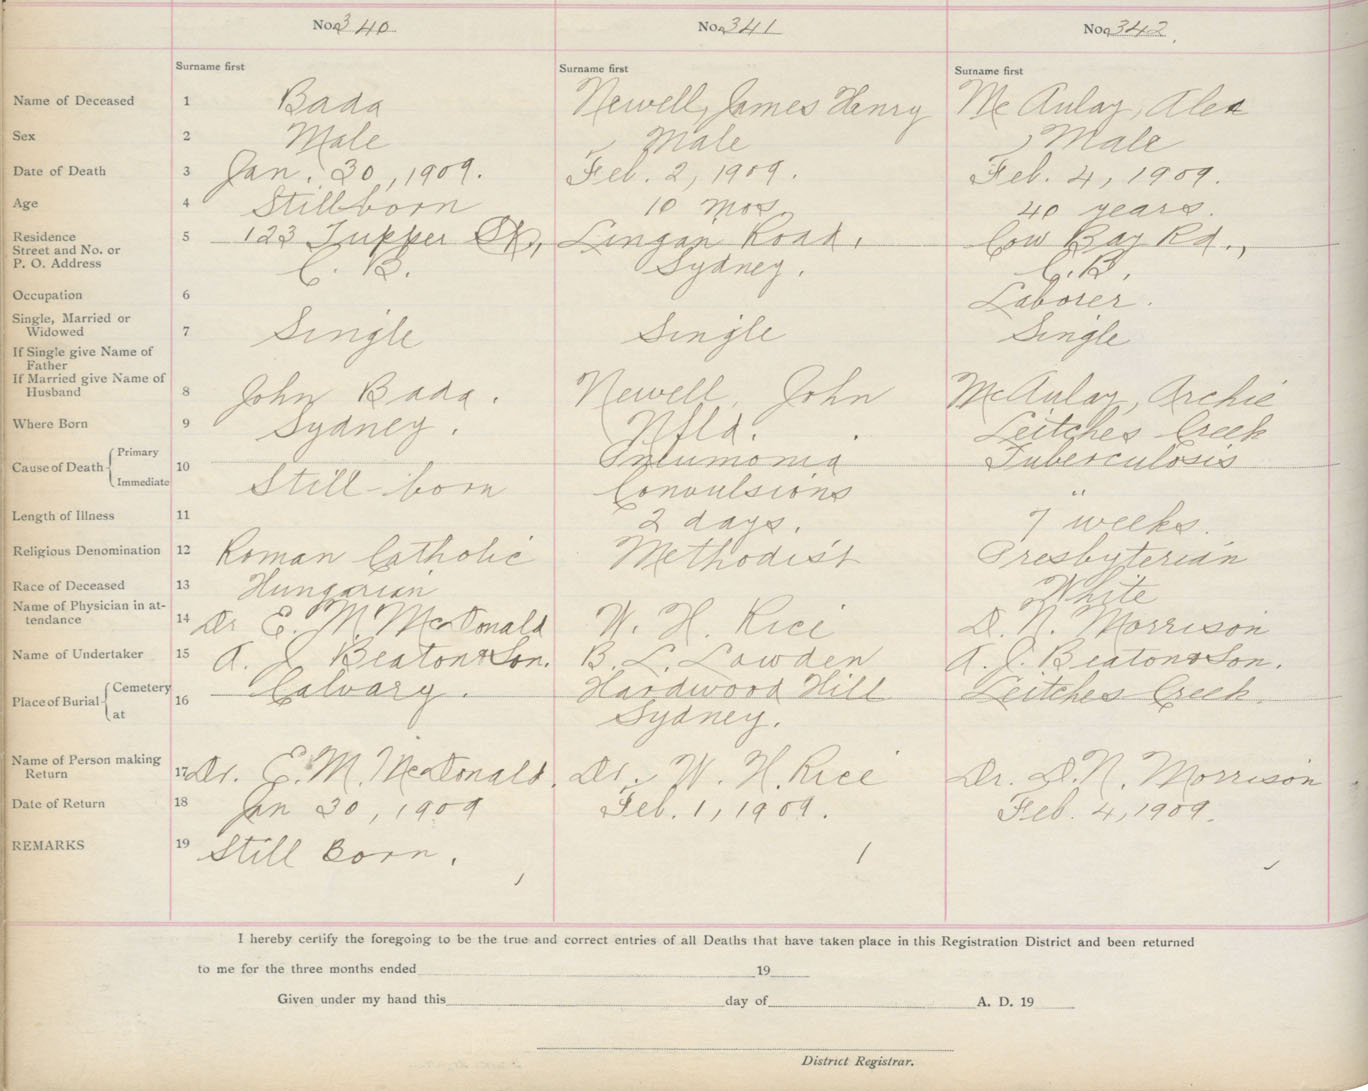 No. 340 No. 341 No. 342.
Surname first Surname first Surname first
Name of Deceased 1 Bada Newell, James Henry McAulay, Alex
Sex 2 Male Male Male
Date of Death 3 Jan. 30, 1909. Feb. 2, 1909. Feb. 4, 1909.
Age 4 Stillborn 10 mos 40 years.
Residence 5 123 Tupper St., Lingan Road, Cow Bay Rd.,
Street and No. or
P. O. Address C. B. Sydney. C. B,
Occupation 6 Laborer.
Single, Married or
Widowed 7 Single Single Single
If Single give Name of
Father
If Married give Name of
Husband 8 John Bada. Newell, John McAulay, Archie
Where Born 9 Sydney. Nfld. Leitches Creek
Cause of Death { Primary 10 Pneumonia Tuberculosis
Immediate Still-born Convulsions "
Length of Illness 11 2 days. 7 weeks.
Religious Denomination 12 Roman Catholic Methodist Presbyterian
Race of Deceased 13 Hungarian White
Name of Physician in at-
tendance 14 Dr E. M. McDonald W. H. Rice D. N. Morrison
Name of Undertaker 15 A. J. Beaton & Son. B. L. Lowden A. J. Beaton & Son.
Place of Burial { Cemetery 16 Calvary. Hardwood Hill Leitches Creek.
at Sydney.
Name of Person making
Return 17 Dr. E. M. McDonald. Dr. W. H. Rice Dr. D. N. Morrison
Date of Return 18 Jan 30, 1909 Feb. 1, 1909. Feb. 4, 1909.
REMARKS 19 Still Born.
I hereby certify the foregoing to be the true and correct entries of all Deaths that have taken place in this Registration District and been returned
to me for the three months ended 19
Given under my hand this day of A. D. 19
District Registrar.